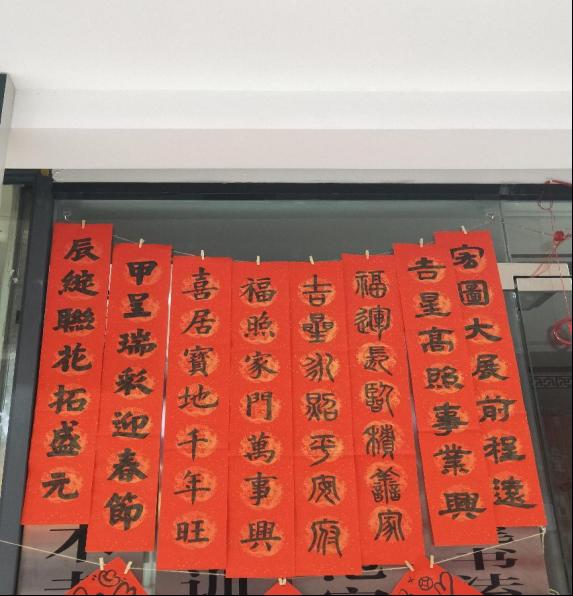 宏圖大展前程遠
吉星髙照事業興
福運長臨積善家
吉星永照平安府
福照家門萬事興
喜居寶地千年旺
甲呈瑞彩迎春節
辰綻聯花拓盛元
书法